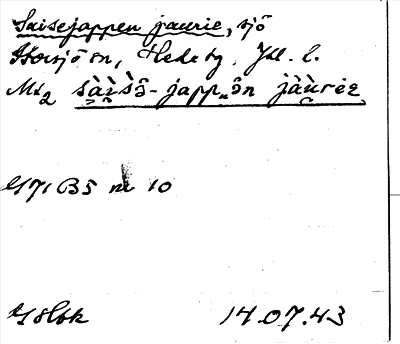 Saisejappen jaurie, sjö
Storsjö sn, Hede tg. Jtl. l.
Ms2 sàisô-jappₒn jàùriɛ
G71 B5 nr 10
14.07.43